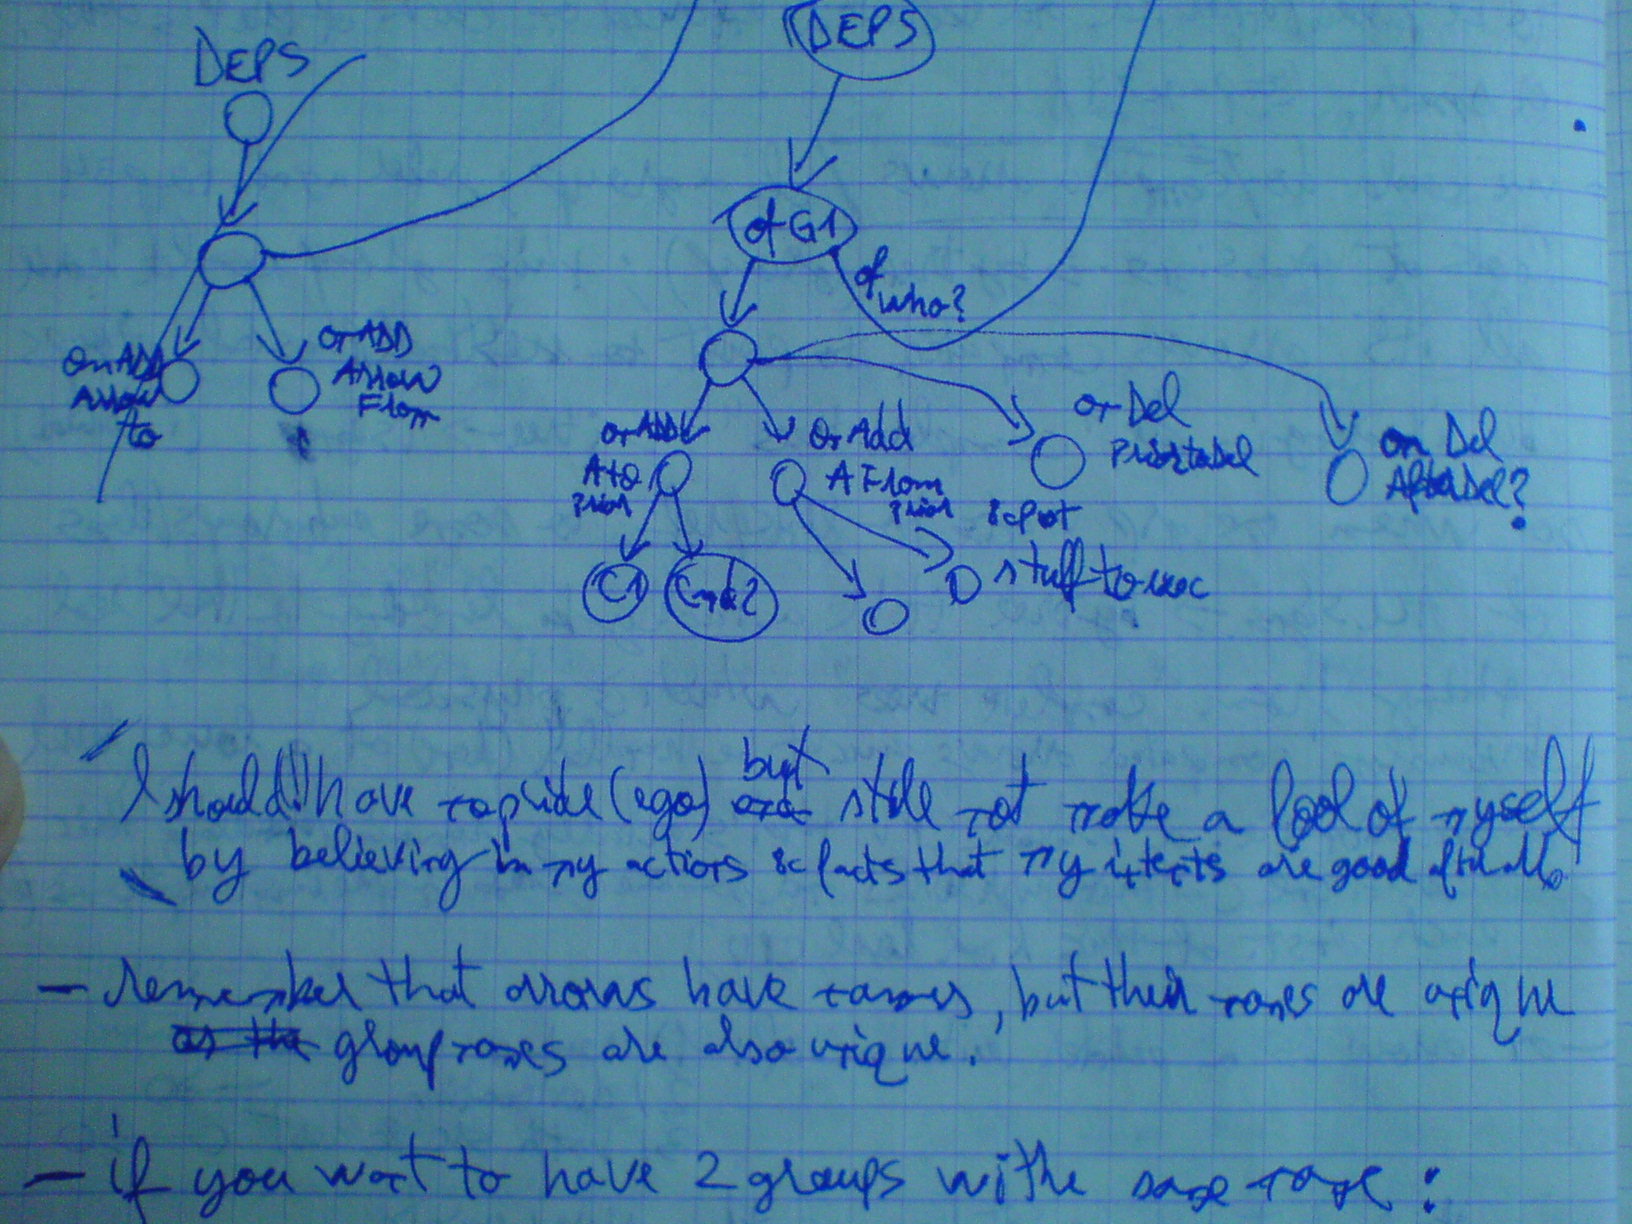 DEPS
DEPS
of G1
of
who?
on ADD
Arrow
to
on ADD
Arrow
From
on ADD
A to
prior
on Add
A From
prior
on Del
Prior to Del
on Del
After Del?
C1
Cmd2
stuff to exec
I should have no pride (ego) but still not make a fool of myself
by believing in my actions & facts that my intents are good after all.
- remember that arrows have names, but their names are unique
as the group names are also unique.
- if you want to have 2 groups with same name :